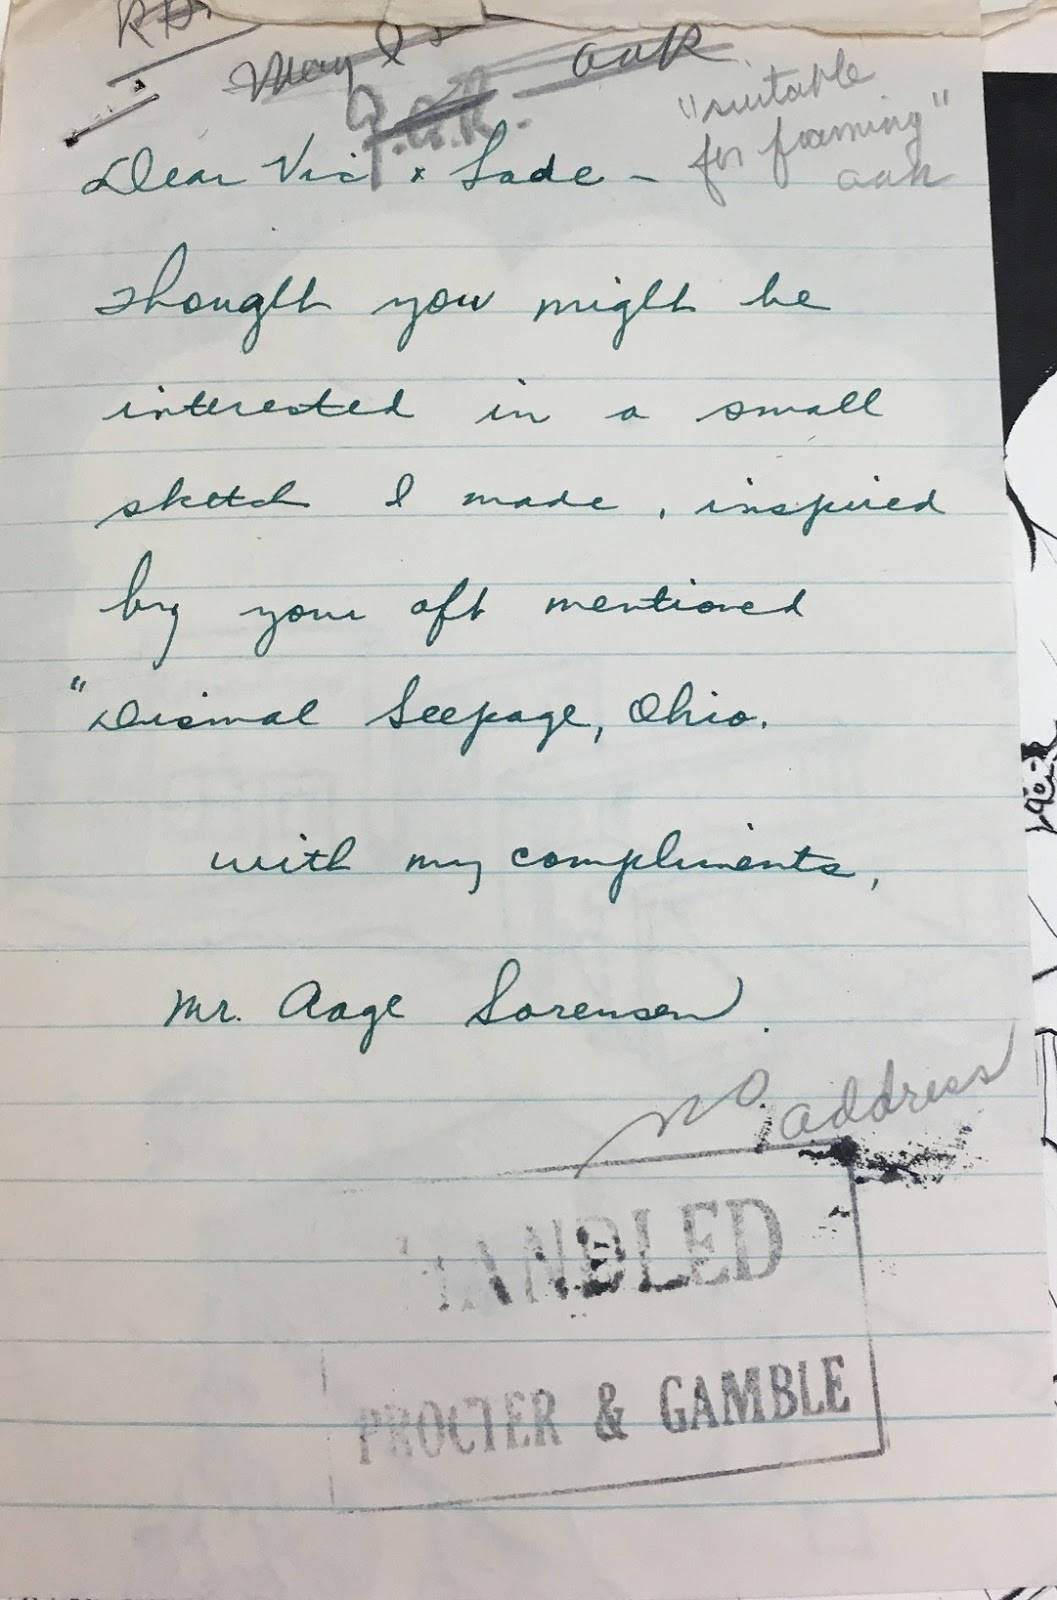 May
aak
P.G.R.
"suitable
for framing"
aak
Dear Vic & Sade –
Thought you might be
interested in a small
sketch I made, inspired
by your oft mentioned
"Dismal Seepage, Ohio.
with my compliments,
Mr. Aage Sorensen.
no address
HANDLED
PROCTER & GAMBLE